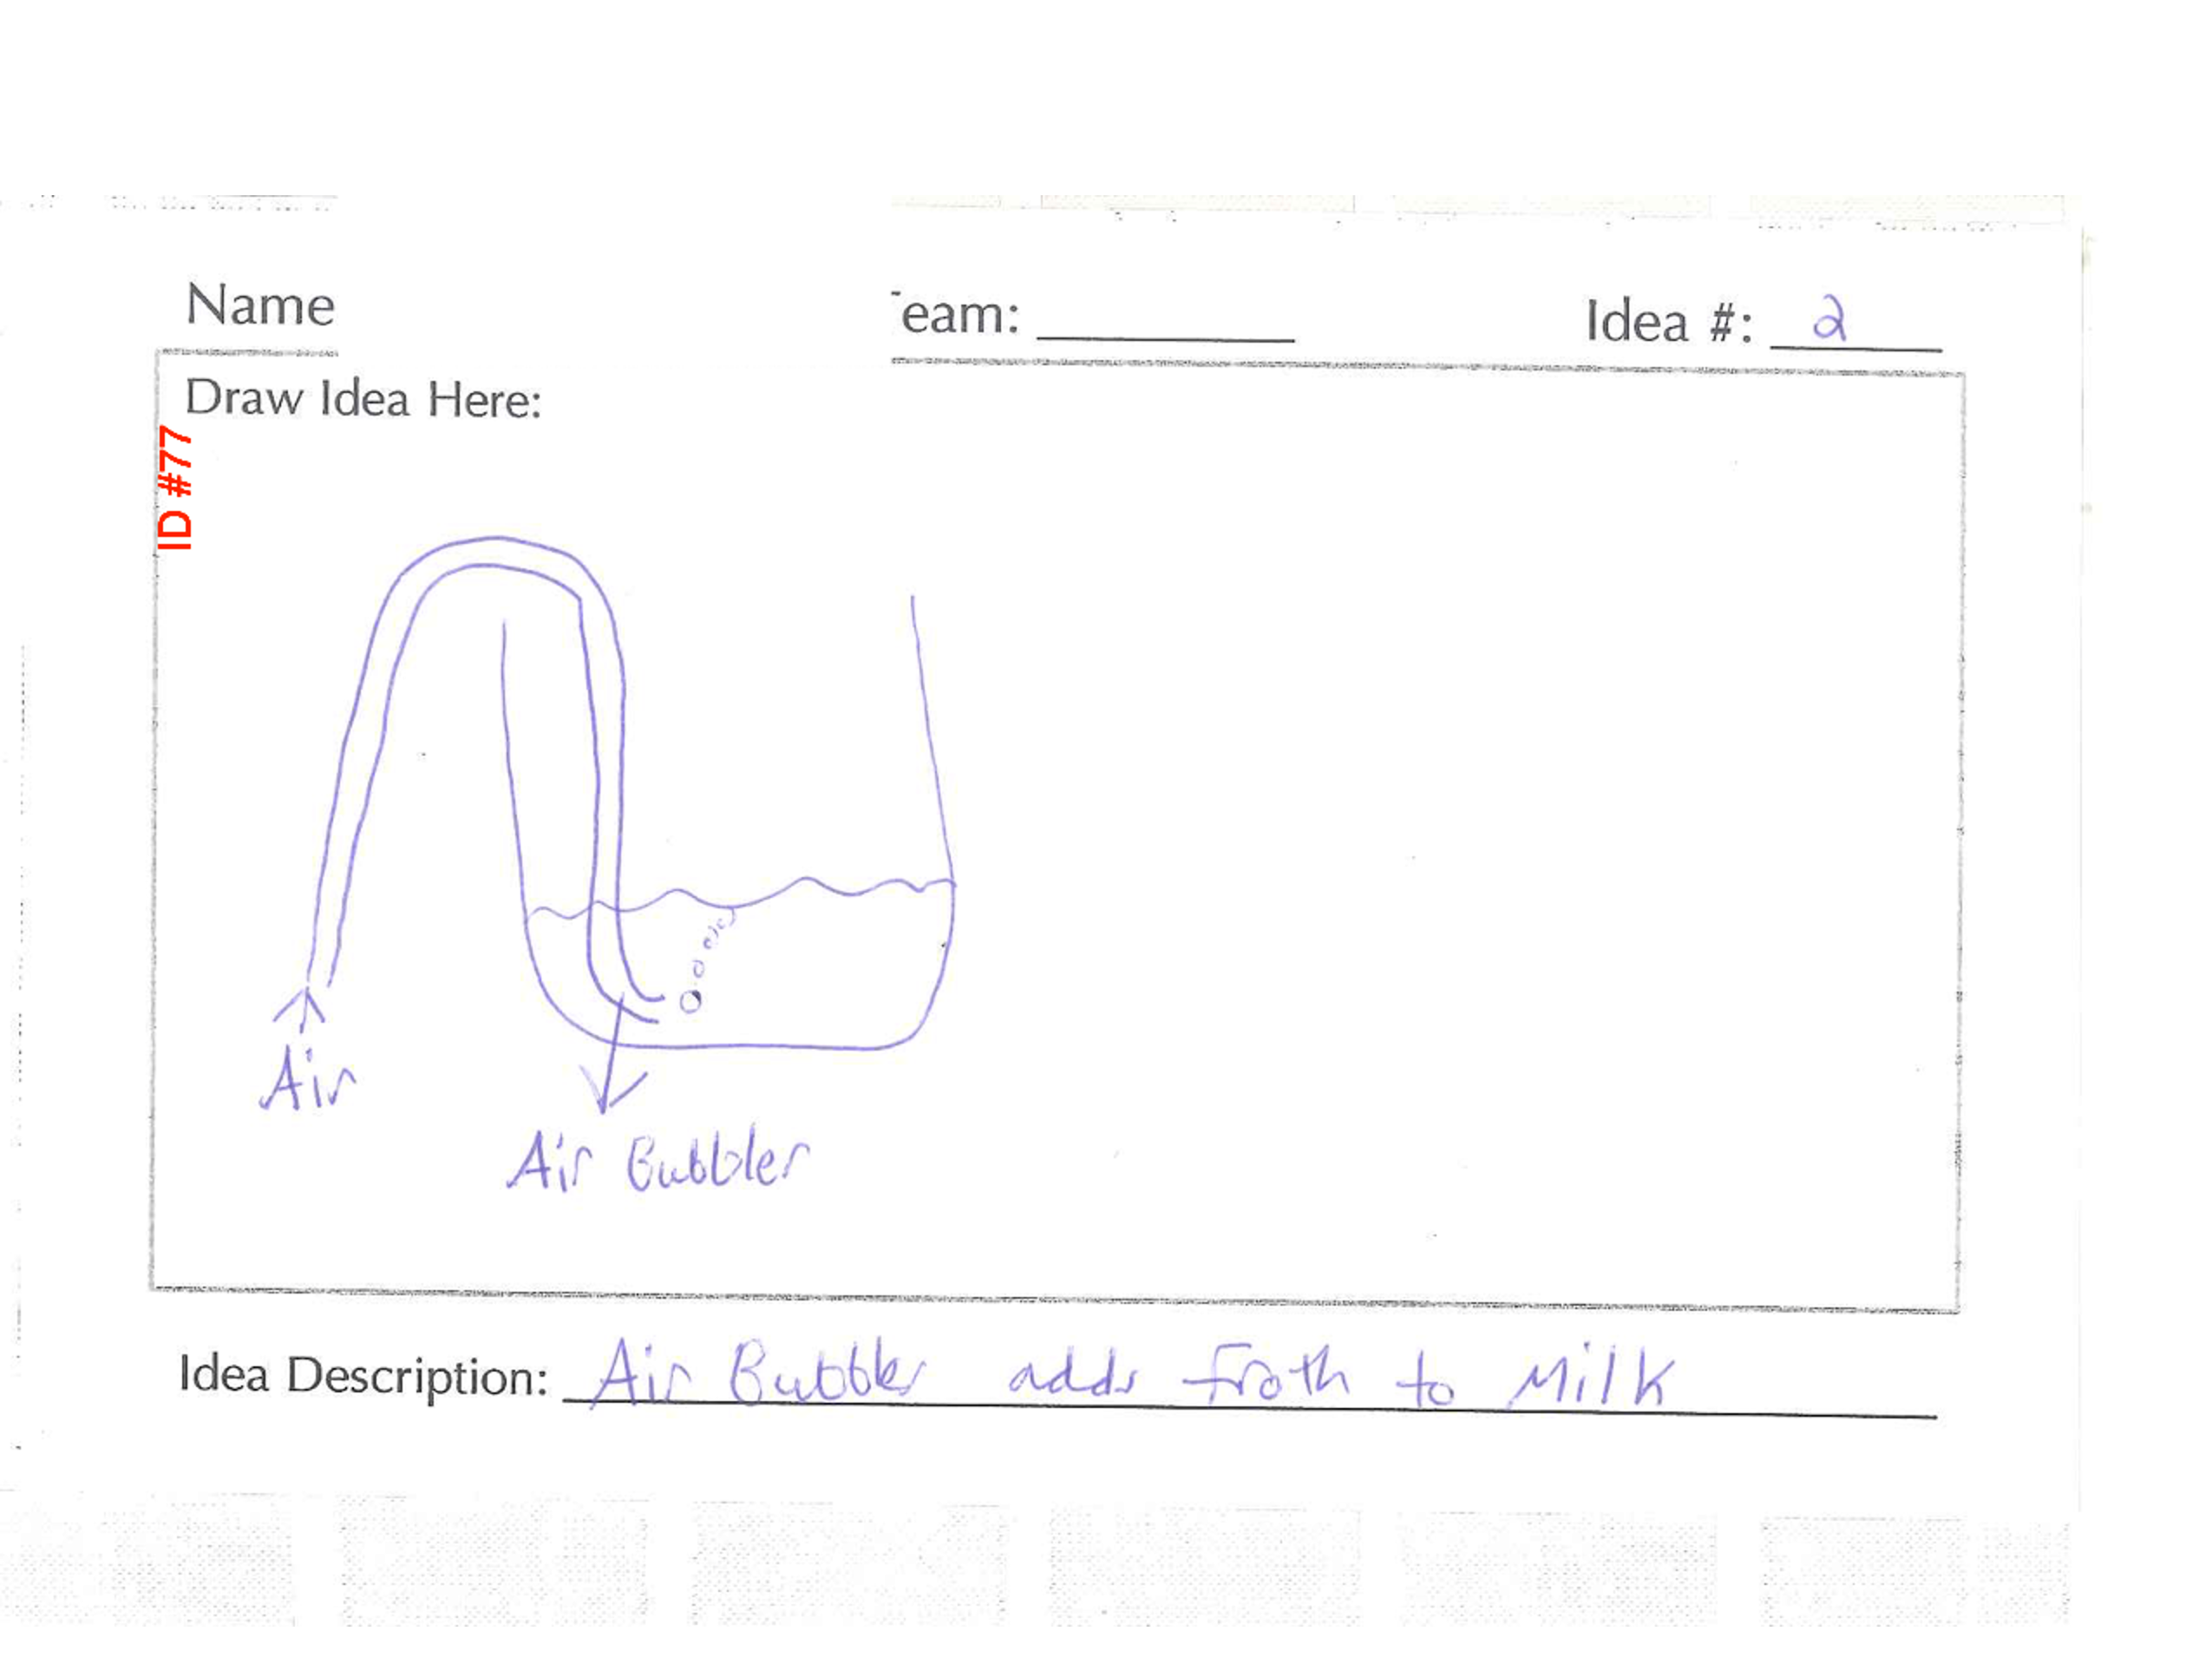 Name
eam:
Idea #: 2
Draw Idea Here:
ID #77
Air
Air Bubbler
Idea Description: Air Bubbler adds Froth to Milk